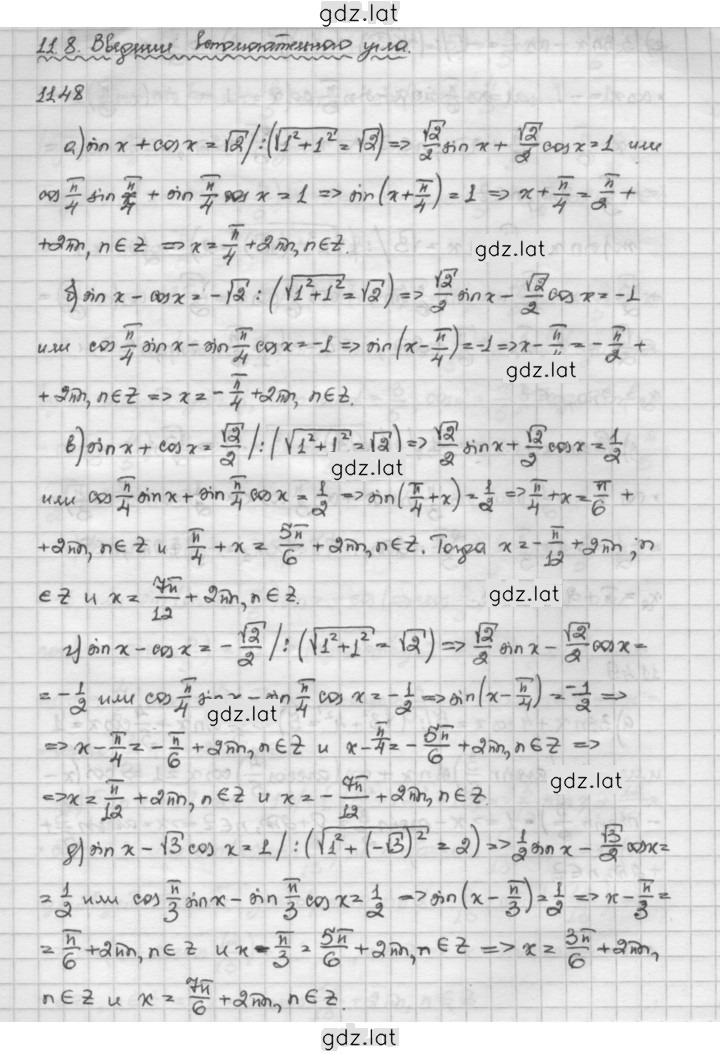 gdz.lat
11.8. Введение вспомогательного угла.
11.48
а) sin x + cos x = √2 / : (√(1²+1²) = √2) => √2/2 sin x + √2/2 cos x = 1 или
cos π/4 sin π/4 + sin π/4 cos x = 1 => sin(x + π/4) = 1 => x + π/4 = π/2 +
+ 2πn, n∈Z => x = π/4 + 2πn, n∈Z.
gdz.lat
б) sin x - cos x = -√2 : (√(1²+1²) = √2) => √2/2 sin x - √2/2 cos x = -1
или cos π/4 sin x - sin π/4 cos x = -1 => sin(x - π/4) = -1 => x - π/4 = -π/2 +
gdz.lat
+ 2πn, n∈Z => x = -π/4 + 2πn, n∈Z.
в) sin x + cos x = √2/2 / : (√(1²+1²) = √2) => √2/2 sin x + √2/2 cos x = 1/2
gdz.lat
или cos π/4 sin x + sin π/4 cos x = 1/2 => sin(π/4 + x) = 1/2 => π/4 + x = π/6 +
+ 2πn, n∈Z и π/4 + x = 5π/6 + 2πn, n∈Z. Тогда x = -π/12 + 2πn; n
∈Z и x = 7π/12 + 2πn, n∈Z.
gdz.lat
г) sin x - cos x = -√2/2 / : (√(1²+1²) = √2) => √2/2 sin x - √2/2 cos x =
= -1/2 или cos π/4 sin x - sin π/4 cos x = -1/2 => sin(x - π/4) = -1/2 =>
gdz.lat
=> x - π/4 = -π/6 + 2πn, n∈Z и x - π/4 = -5π/6 + 2πn, n∈Z =>
=> x = π/12 + 2πn, n∈Z и x = -7π/12 + 2πn, n∈Z.
gdz.lat
д) sin x - √3 cos x = 1 / : (√(1²+(-√3)²) = 2) => 1/2 sin x - √3/2 cos x =
= 1/2 или cos π/3 sin x - sin π/3 cos x = 1/2 => sin(x - π/3) = 1/2 => x - π/3 =
= π/6 + 2πn, n∈Z и x - π/3 = 5π/6 + 2πn, n∈Z => x = 3π/6 + 2πn,
n∈Z и x = 7π/6 + 2πn, n∈Z.
gdz.lat